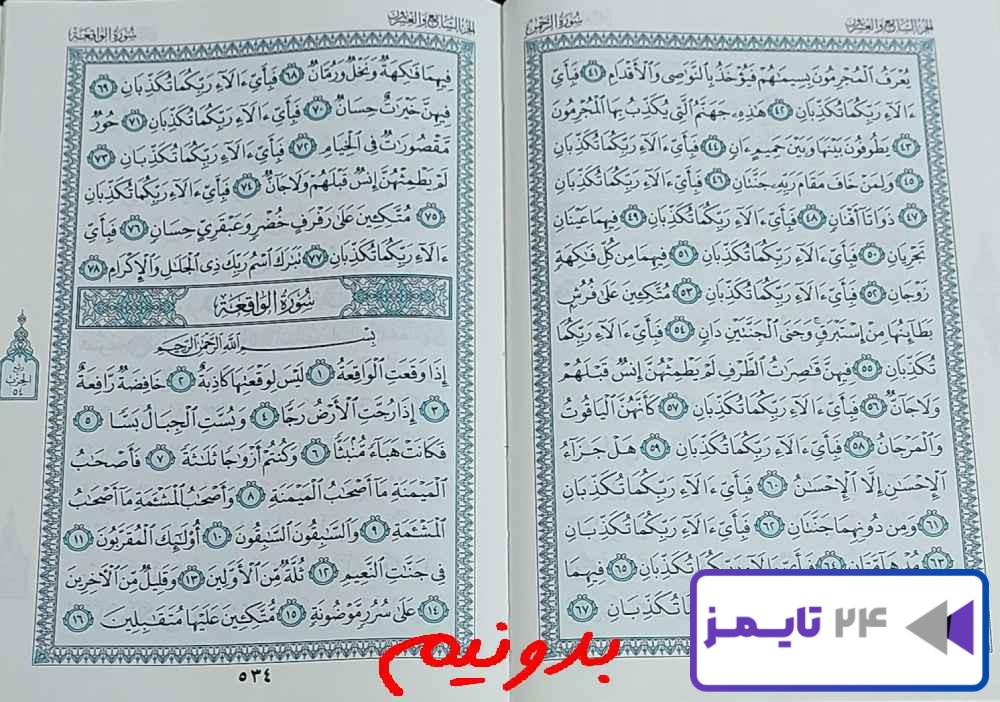 الجزء السابع والعشرون
سورة الرحمن
يُعْرَفُ الْمُجْرِمُونَ بِسِيمَاهُمْ فَيُؤْخَذُ بِالنَّوَاصِي وَالْأَقْدَامِ ٤١ فَبِأَيِّ
ءَالَاءِ رَبِّكُمَا تُكَذِّبَانِ ٤٢ هَذِهِ جَهَنَّمُ الَّتِي يُكَذِّبُ بِهَا الْمُجْرِمُونَ
٤٣ يَطُوفُونَ بَيْنَهَا وَبَيْنَ حَمِيمٍ ءَانٍ ٤٤ فَبِأَيِّ ءَالَاءِ رَبِّكُمَا تُكَذِّبَانِ
٤٥ وَلِمَنْ خَافَ مَقَامَ رَبِّهِ جَنَّتَانِ ٤٦ فَبِأَيِّ ءَالَاءِ رَبِّكُمَا تُكَذِّبَانِ
٤٧ ذَوَاتَا أَفْنَانٍ ٤٨ فَبِأَيِّ ءَالَاءِ رَبِّكُمَا تُكَذِّبَانِ ٤٩ فِيهِمَا عَيْنَانِ
تَجْرِيَانِ ٥٠ فَبِأَيِّ ءَالَاءِ رَبِّكُمَا تُكَذِّبَانِ ٥١ فِيهِمَا مِن كُلِّ فَاكِهَةٍ
زَوْجَانِ ٥٢ فَبِأَيِّ ءَالَاءِ رَبِّكُمَا تُكَذِّبَانِ ٥٣ مُتَّكِئِينَ عَلَى فُرُشٍ
بَطَائِنُهَا مِنْ إِسْتَبْرَقٍ وَجَنَى الْجَنَّتَيْنِ دَانٍ ٥٤ فَبِأَيِّ ءَالَاءِ رَبِّكُمَا
تُكَذِّبَانِ ٥٥ فِيهِنَّ قَاصِرَاتُ الطَّرْفِ لَمْ يَطْمِثْهُنَّ إِنسٌ قَبْلَهُمْ
وَلَا جَانٌّ ٥٦ فَبِأَيِّ ءَالَاءِ رَبِّكُمَا تُكَذِّبَانِ ٥٧ كَأَنَّهُنَّ الْيَاقُوتُ
وَالْمَرْجَانُ ٥٨ فَبِأَيِّ ءَالَاءِ رَبِّكُمَا تُكَذِّبَانِ ٥٩ هَلْ جَزَاءُ
الْإِحْسَانِ إِلَّا الْإِحْسَانُ ٦٠ فَبِأَيِّ ءَالَاءِ رَبِّكُمَا تُكَذِّبَانِ
٦١ وَمِن دُونِهِمَا جَنَّتَانِ ٦٢ فَبِأَيِّ ءَالَاءِ رَبِّكُمَا تُكَذِّبَانِ
٦٣ مُدْهَامَّتَانِ ٦٤ فَبِأَيِّ ءَالَاءِ رَبِّكُمَا تُكَذِّبَانِ ٦٥ فِيهِمَا
تُكَذِّبَانِ ٦٧
الجزء السابع والعشرون
سورة الواقعة
فِيهِمَا فَاكِهَةٌ وَنَخْلٌ وَرُمَّانٌ ٦٨ فَبِأَيِّ ءَالَاءِ رَبِّكُمَا تُكَذِّبَانِ ٦٩
فِيهِنَّ خَيْرَاتٌ حِسَانٌ ٧٠ فَبِأَيِّ ءَالَاءِ رَبِّكُمَا تُكَذِّبَانِ ٧١ حُورٌ
مَّقْصُورَاتٌ فِي الْخِيَامِ ٧٢ فَبِأَيِّ ءَالَاءِ رَبِّكُمَا تُكَذِّبَانِ ٧٣
لَمْ يَطْمِثْهُنَّ إِنسٌ قَبْلَهُمْ وَلَا جَانٌّ ٧٤ فَبِأَيِّ ءَالَاءِ رَبِّكُمَا تُكَذِّبَانِ
٧٥ مُتَّكِئِينَ عَلَى رَفْرَفٍ خُضْرٍ وَعَبْقَرِيٍّ حِسَانٍ ٧٦ فَبِأَيِّ
ءَالَاءِ رَبِّكُمَا تُكَذِّبَانِ ٧٧ تَبَارَكَ اسْمُ رَبِّكَ ذِي الْجَلَالِ وَالْإِكْرَامِ ٧٨
سُورَةُ الْوَاقِعَةِ
بِسْمِ اللَّهِ الرَّحْمَنِ الرَّحِيمِ
إِذَا وَقَعَتِ الْوَاقِعَةُ ١ لَيْسَ لِوَقْعَتِهَا كَاذِبَةٌ ٢ خَافِضَةٌ رَّافِعَةٌ
٣ إِذَا رُجَّتِ الْأَرْضُ رَجًّا ٤ وَبُسَّتِ الْجِبَالُ بَسًّا ٥
فَكَانَتْ هَبَاءً مُّنبَثًّا ٦ وَكُنتُمْ أَزْوَاجًا ثَلَاثَةً ٧ فَأَصْحَابُ
الْمَيْمَنَةِ مَا أَصْحَابُ الْمَيْمَنَةِ ٨ وَأَصْحَابُ الْمَشْئَمَةِ مَا أَصْحَابُ
الْمَشْئَمَةِ ٩ وَالسَّابِقُونَ السَّابِقُونَ ١٠ أُولَئِكَ الْمُقَرَّبُونَ ١١
فِي جَنَّاتِ النَّعِيمِ ١٢ ثُلَّةٌ مِّنَ الْأَوَّلِينَ ١٣ وَقَلِيلٌ مِّنَ الْآخِرِينَ
١٤ عَلَى سُرُرٍ مَّوْضُونَةٍ ١٥ مُّتَّكِئِينَ عَلَيْهَا مُتَقَابِلِينَ ١٦
٥٣٤
ربع
الحزب
٥٤
بدونیم
۲۴ تایمز